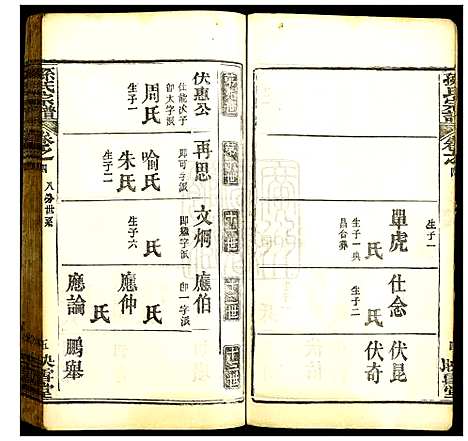 生子一
單虎
氏
生子一與
昌合葬
仕念
氏
生子二
伏昆
伏奇
伏惠公
仕能次子
即大字派
周氏
生子一
再思
即可字派
喻氏
朱氏
生子二
文炯
即繼字派
氏
生子六
應伯
即一字派
氏
應仲
氏
應論
鵬舉
孫氏宗譜
卷之四
八分世系
五
映雪堂